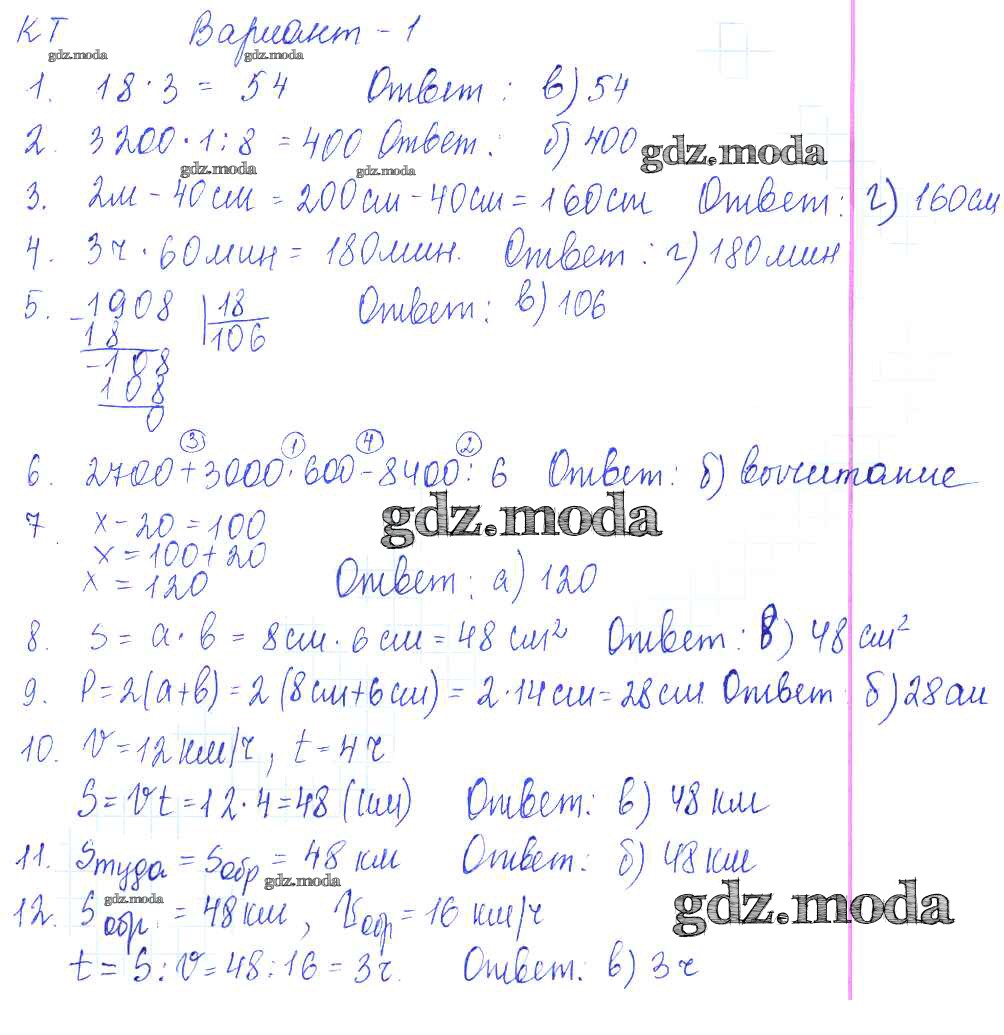 КТ Вариант - 1
gdz.moda gdz.moda
1. 18 · 3 = 54 Ответ : в) 54
2. 3200 · 1 : 8 = 400 Ответ : б) 400 gdz.moda
gdz.moda gdz.moda
3. 2м - 40см = 200см - 40см = 160см Ответ : г) 160см
4. 3ч · 60мин = 180мин. Ответ : г) 180мин
5. -1908 | 18 Ответ : в) 106
18 106
-108
108
0
③ ① ④ ②
6. 2700 + 3000 · 600 - 8400 : 6 Ответ : б) вычитание
7. x - 20 = 100 gdz.moda
x = 100 + 20
x = 120 Ответ : а) 120
8. S = a · b = 8см · 6см = 48 см² Ответ : в) 48 см²
9. P = 2(a+b) = 2 (8см+6см) = 2 · 14см = 28см. Ответ : б) 28см
10. V = 12 км/ч, t = 4ч
S = Vt = 12 · 4 = 48 (км) Ответ : в) 48 км
11. Sтуда = Sобр = 48 км Ответ : б) 48 км
gdz.moda
12. Sобр. = 48 км, Vобр = 16 км/ч gdz.moda
gdz.moda
t = S : V = 48 : 16 = 3ч. Ответ : в) 3ч